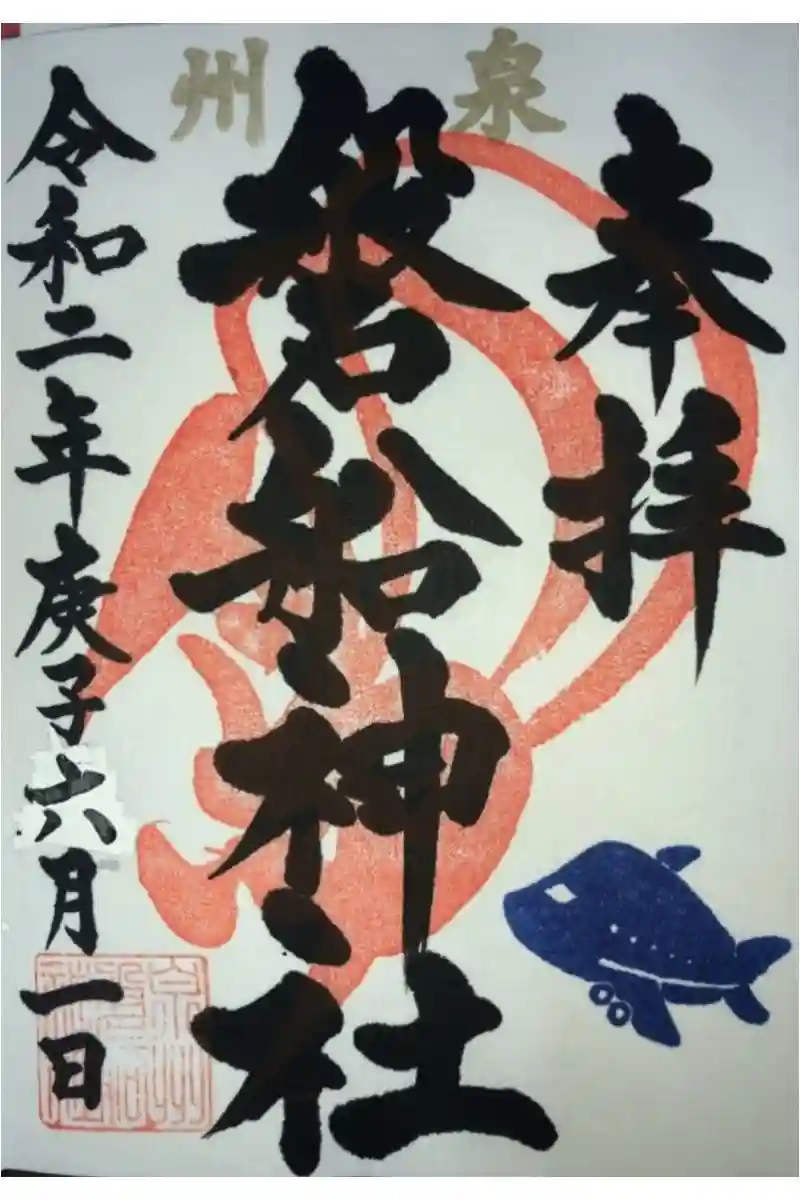 泉州
奉拝
磐船神社
令和二年庚子六月一日